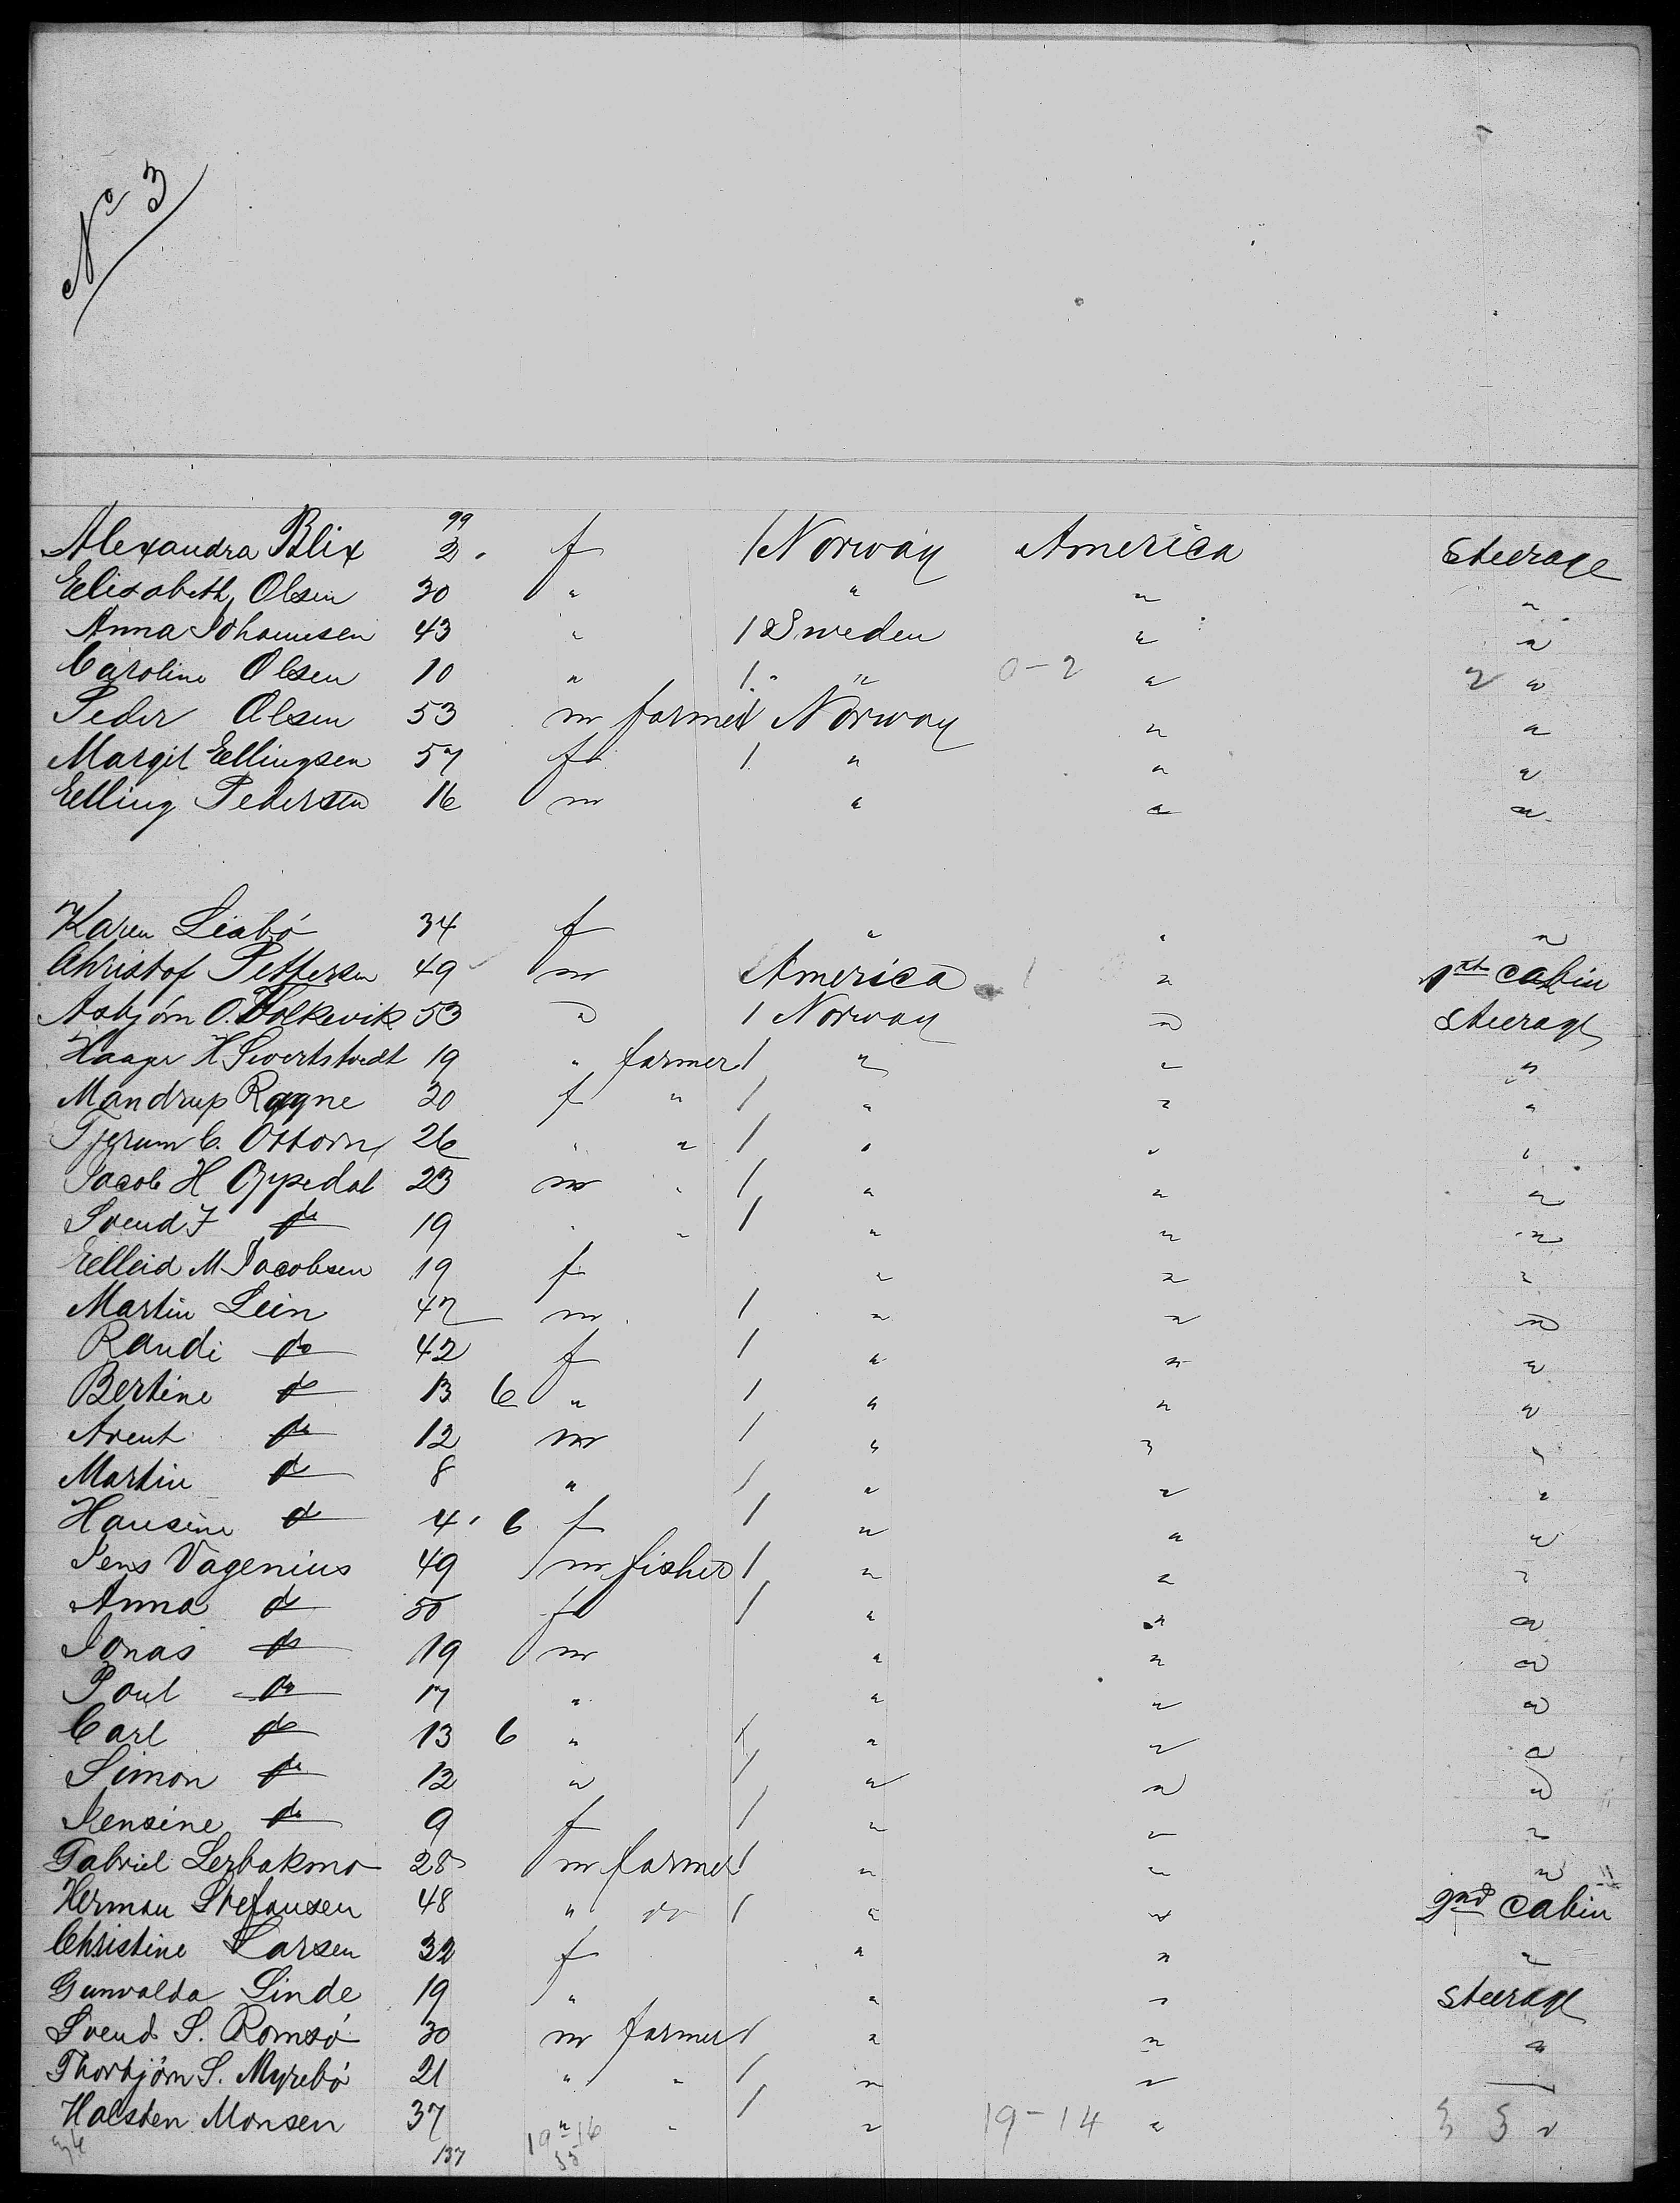 No 3
99
Alexandra Blix 2. f 1 Norway America Steerage
Elisabeth Olsen 30 " " " "
Anna Johannsen 43 " 1 Sweden " "
Caroline Olsen 10 " 1. " 0-2 " 2 "
Peder Olsen 53 m farmer 1 Norway " "
Margit Ellingsen 57 f 1 " " "
Elling Pedersen 16 m " " "
Karen Liabö 34 f " " "
Christof Pettersen 49 m America " 1st cabin
Asbjörn O. Folkevik 53 " 1 Norway " Steerage
Haage H. Sivertstvedt 19 " farmer 1 " " "
Mandrup Ragne 20 f " 1 " " "
C. Ottorn 26 " " 1 " " "
Jacob H Oppedal 23 m " 1 " " "
Svend J do 19 " " 1 " " "
Elleid M Jacobsen 19 f " " "
Martin Lein 47 m 1 " " "
Randi do 42 f 1 " " "
Bertine do 13 6 " 1 " " "
Arent do 12 m 1 " " "
Martin do 8 " 1 " " "
Hansine do 4 6 f 1 " " "
Jens Vagenius 49 m fisher 1 " " "
Anna do 50 f 1 " " "
Jonas do 19 m " " "
Poul do 17 " " " "
Carl do 13 6 " 1 " " "
Simon do 12 " 1 " " "
Jensine do 9 f 1 " " "
Gabriel Lerbakmo 28 m farmer 1 " " "
Herman Stefansen 48 " do 1 " " 2nd cabin
Christine Larsen 32 f " " "
Gunvalda Linde 19 " " " steerage
Svend S. Romsö 30 m farmer 1 " " "
Thorbjörn S. Myrebö 21 " " 1 " "
Halsten Monsen 37 " " 1 " 19-14 " "
137 19-16